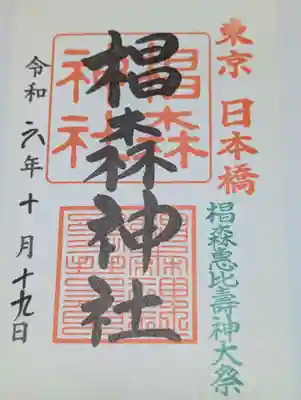 東京 日本橋
椙森惠比壽神大祭
椙森神社
椙森神社
令和六年十月十九日